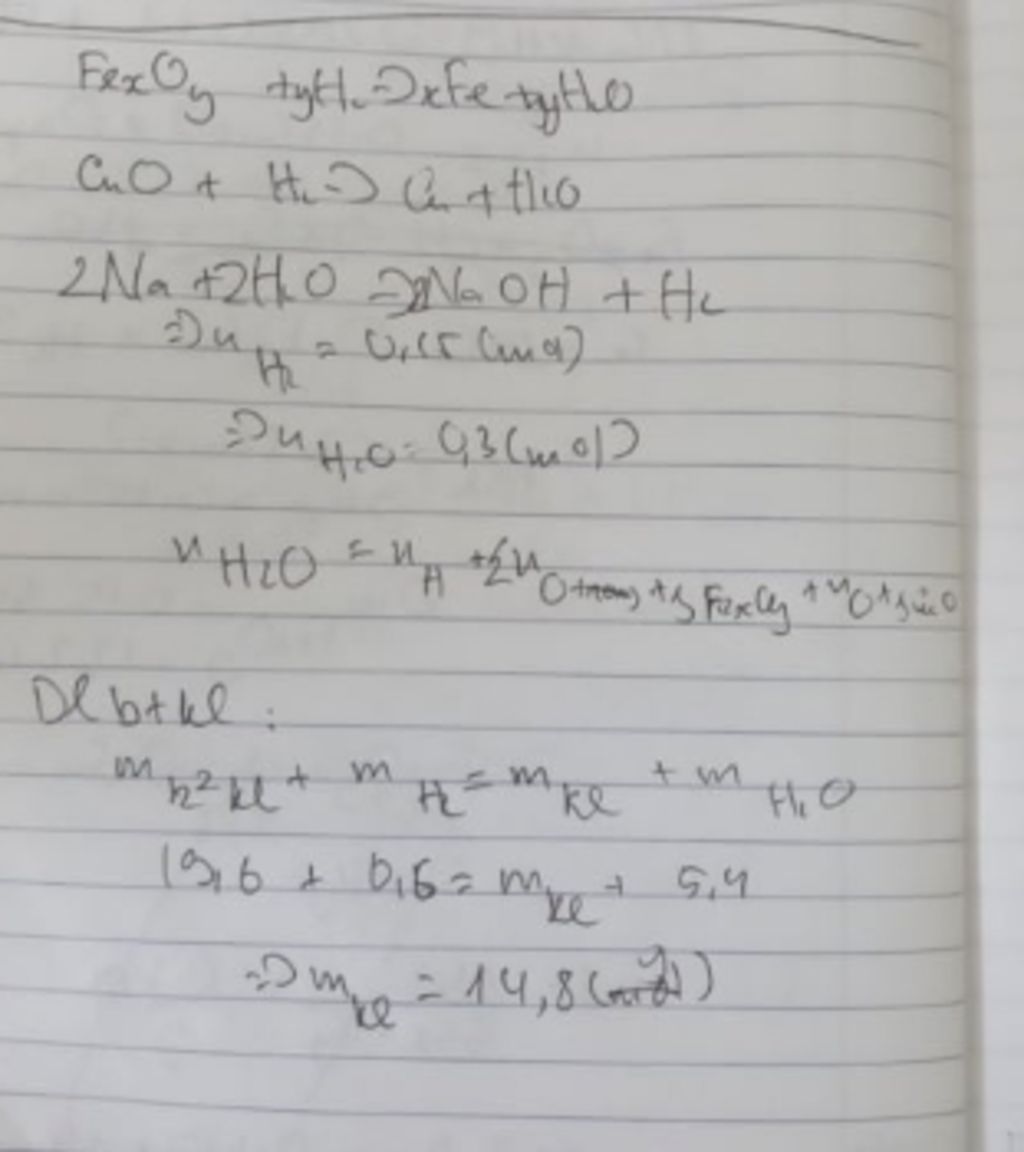 FexOy + yH2 => xFe + yH2O
CuO + H2 => Cu + H2O
2Na + 2H2O => 2NaOH + H2
=> n H2 = 0,15 (mol)
=> n H2O = 0,3 (mol)
n H2O = n H + n O trong FexOy + n O
Dl btkl :
m h2 kl + m H2 = m kl + m H2O
19,6 + 0,6 = m kl + 5,4
=> m kl = 14,8 (g)